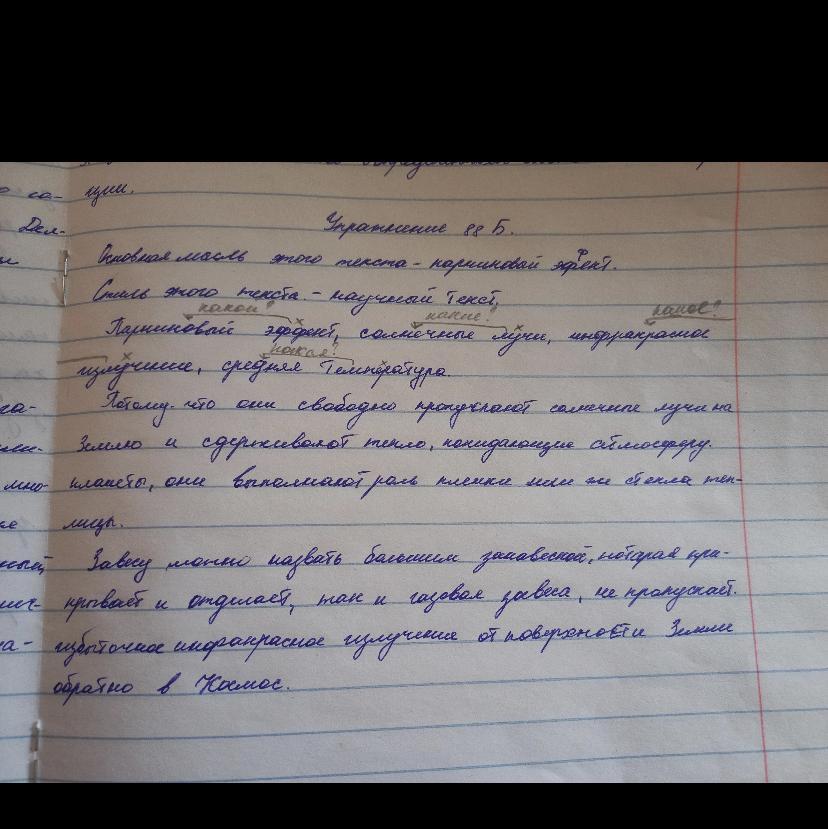 ции.
со-
Упражнение 88 Б.
Дел-
Основная мысль этого текста - парниковой эффект.
Стиль этого текста - научный текст,
какой? какие? какое?
Парниковый эффект, солнечные лучи, инфракрасное
какая?
излучение, средняя температура.
Потому-что они свободно пропускают солнечные лучи на
га-
Землю и сдерживают тепло, покидающие атмосферу
мно-
планеты, они выполняют роль пленки или же стекла теп-
лицы.
Завесу можно назвать большим занавеской, которая при-
крывает и отделяет, так и газовая завеса, не пропускает.
избыточное инфракрасное излучение от поверхности Земли
на-
обратно в Космос.